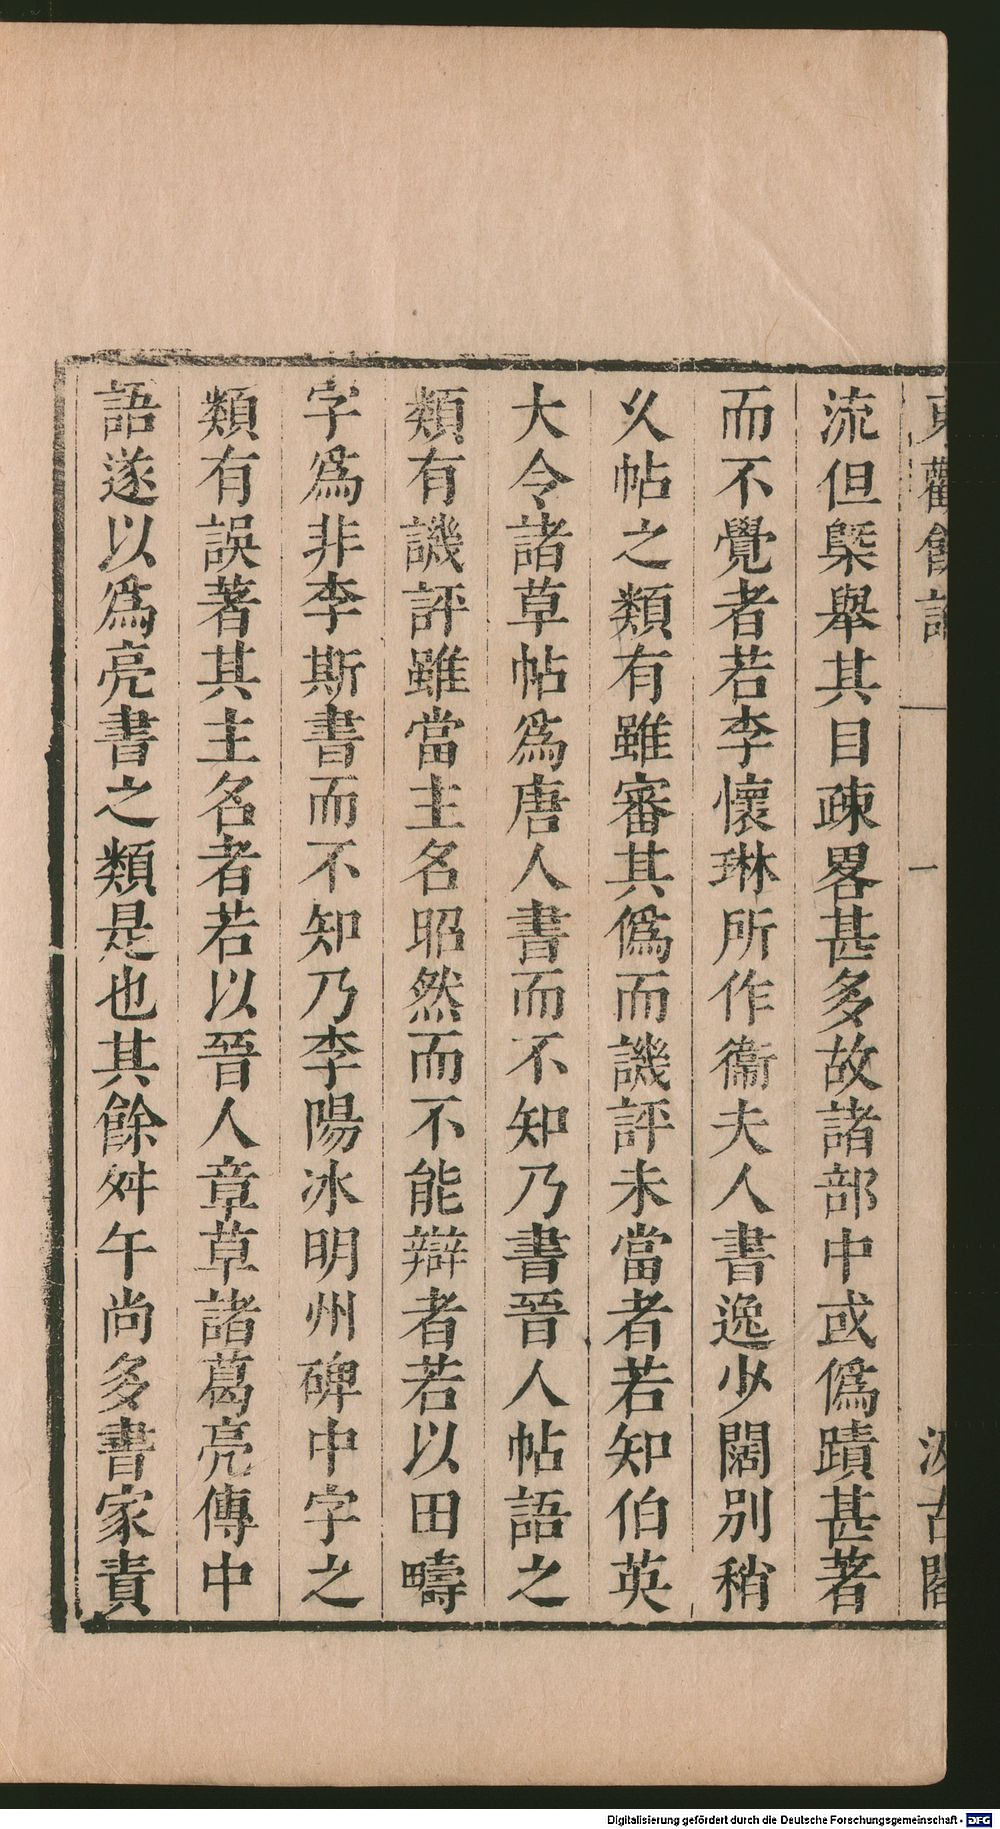 東觀餘論
一
汲古閣
流但槩舉其目疎畧甚多故諸部中或僞蹟甚著
而不覺者若李懷琳所作衞夫人書逸少闊別稍
久帖之類有雖審其僞而譏評未當者若知伯英
大令諸草帖爲唐人書而不知乃書晉人帖語之
類有譏評雖當主名昭然而不能辯者若以田疇
字爲非李斯書而不知乃李陽冰明州碑中字之
類有誤著其主名者若以晉人章草諸葛亮傳中
語遂以爲亮書之類是也其餘舛午尚多書家責
Digitalisierung gefördert durch die Deutsche Forschungsgemeinschaft - DFG